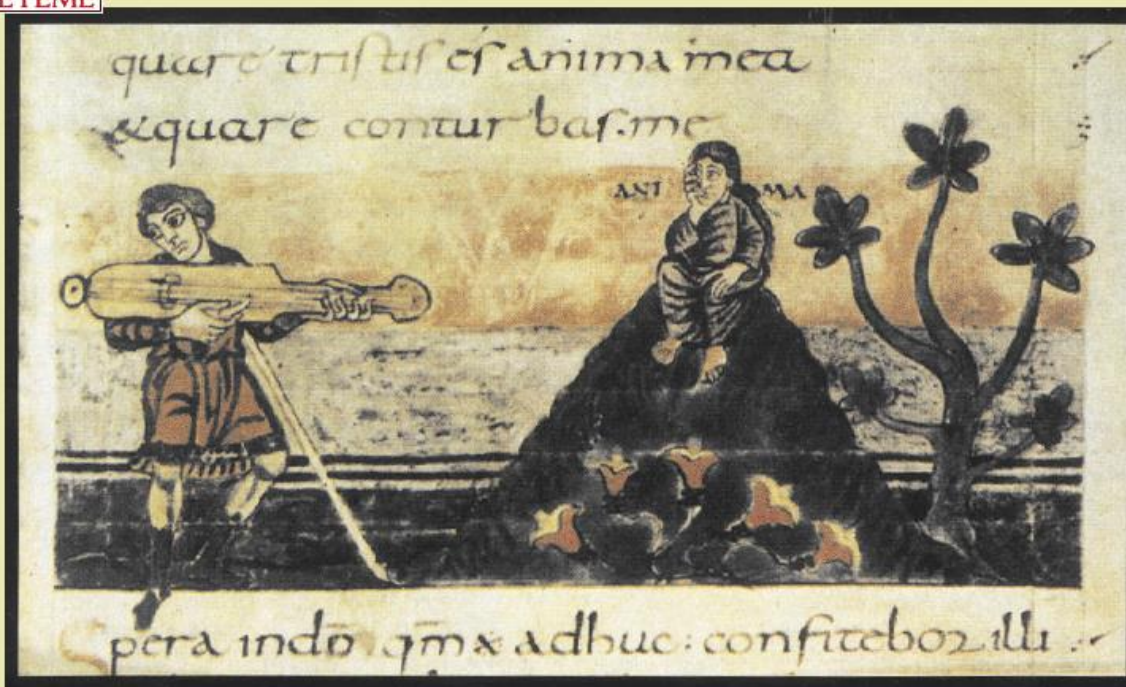 ETEME
quare tristis es anima mea
&quare conturbas.me
ANI MA
Spera in dō qm̄x adhuc: confitebor illi